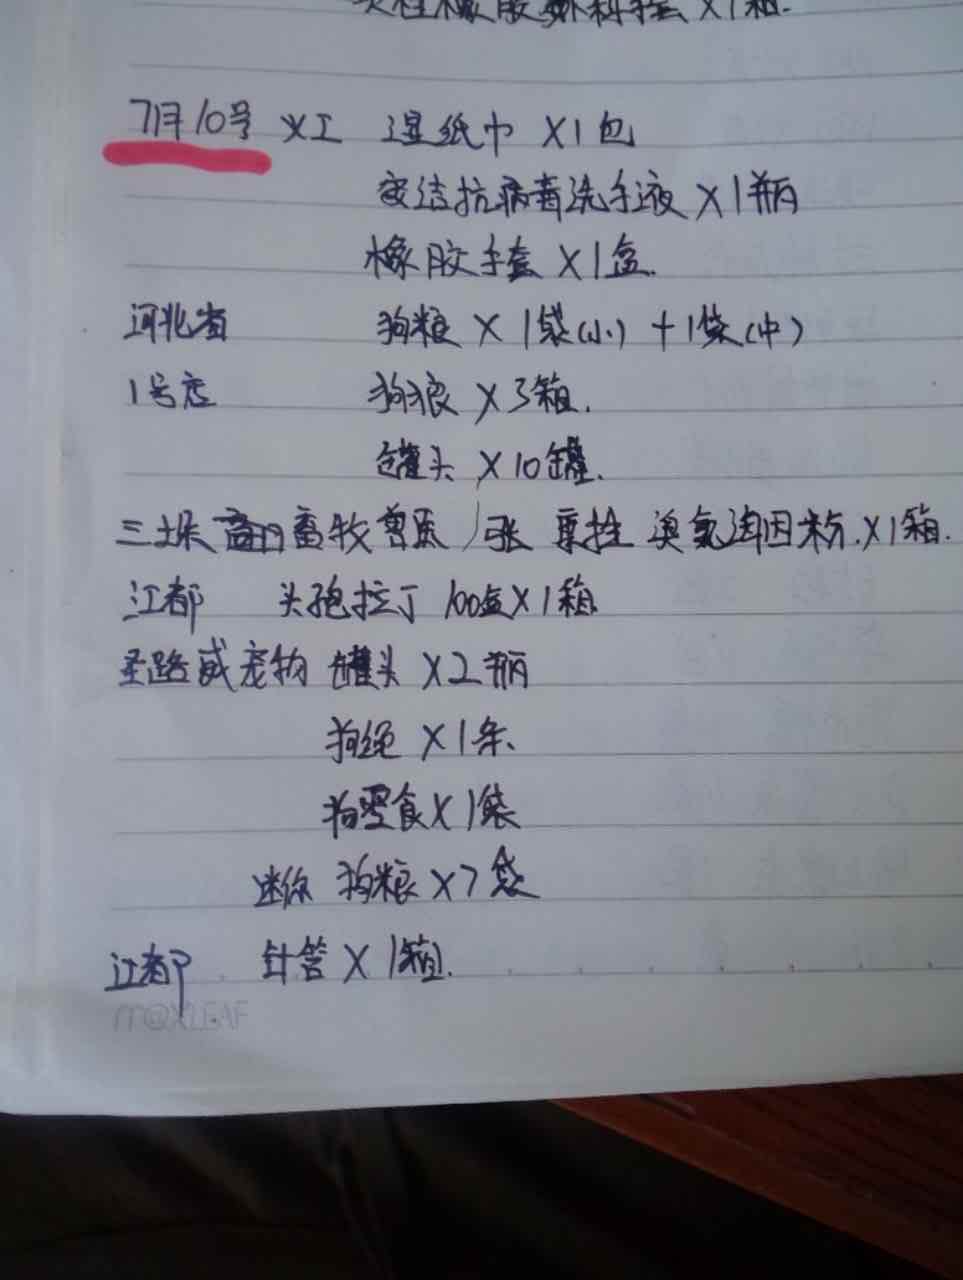 橡胶外科手套 X1箱.
7月10号 义工 湿纸巾 X1包
安洁抗病毒洗手液 X1瓶
橡胶手套 X1盒.
河北省 狗粮 X 1袋(小) + 1袋(中)
1号店 狗狼 X 3箱.
罐头 X10罐.
三垛 畜牧兽医 / 张 臭氯海因粉. X1箱.
江都 头孢拉丁 100盒X1箱
圣路威宠物 罐头 X2瓶
狗绳 X1条.
狗零食X1袋
迷你 狗粮 X7袋
江都 针管 X 1箱.
m@XLEAF